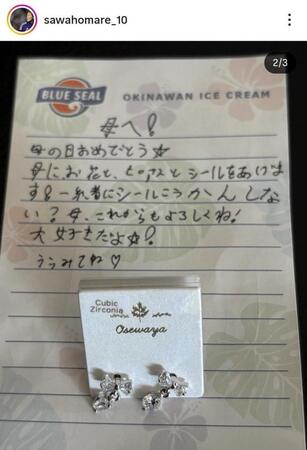 sawahomare_10
2/3
BLUE SEAL
OKINAWAN ICE CREAM
母へ!
母の日おめでとう☆
母にお花と、ピアスとシールをあげま
す!一緒にシールこうかんしな
い?母、これからもよろしくね!
大好きだよ☆!
うらみてね♡
Cubic
Zirconia
Osewaya